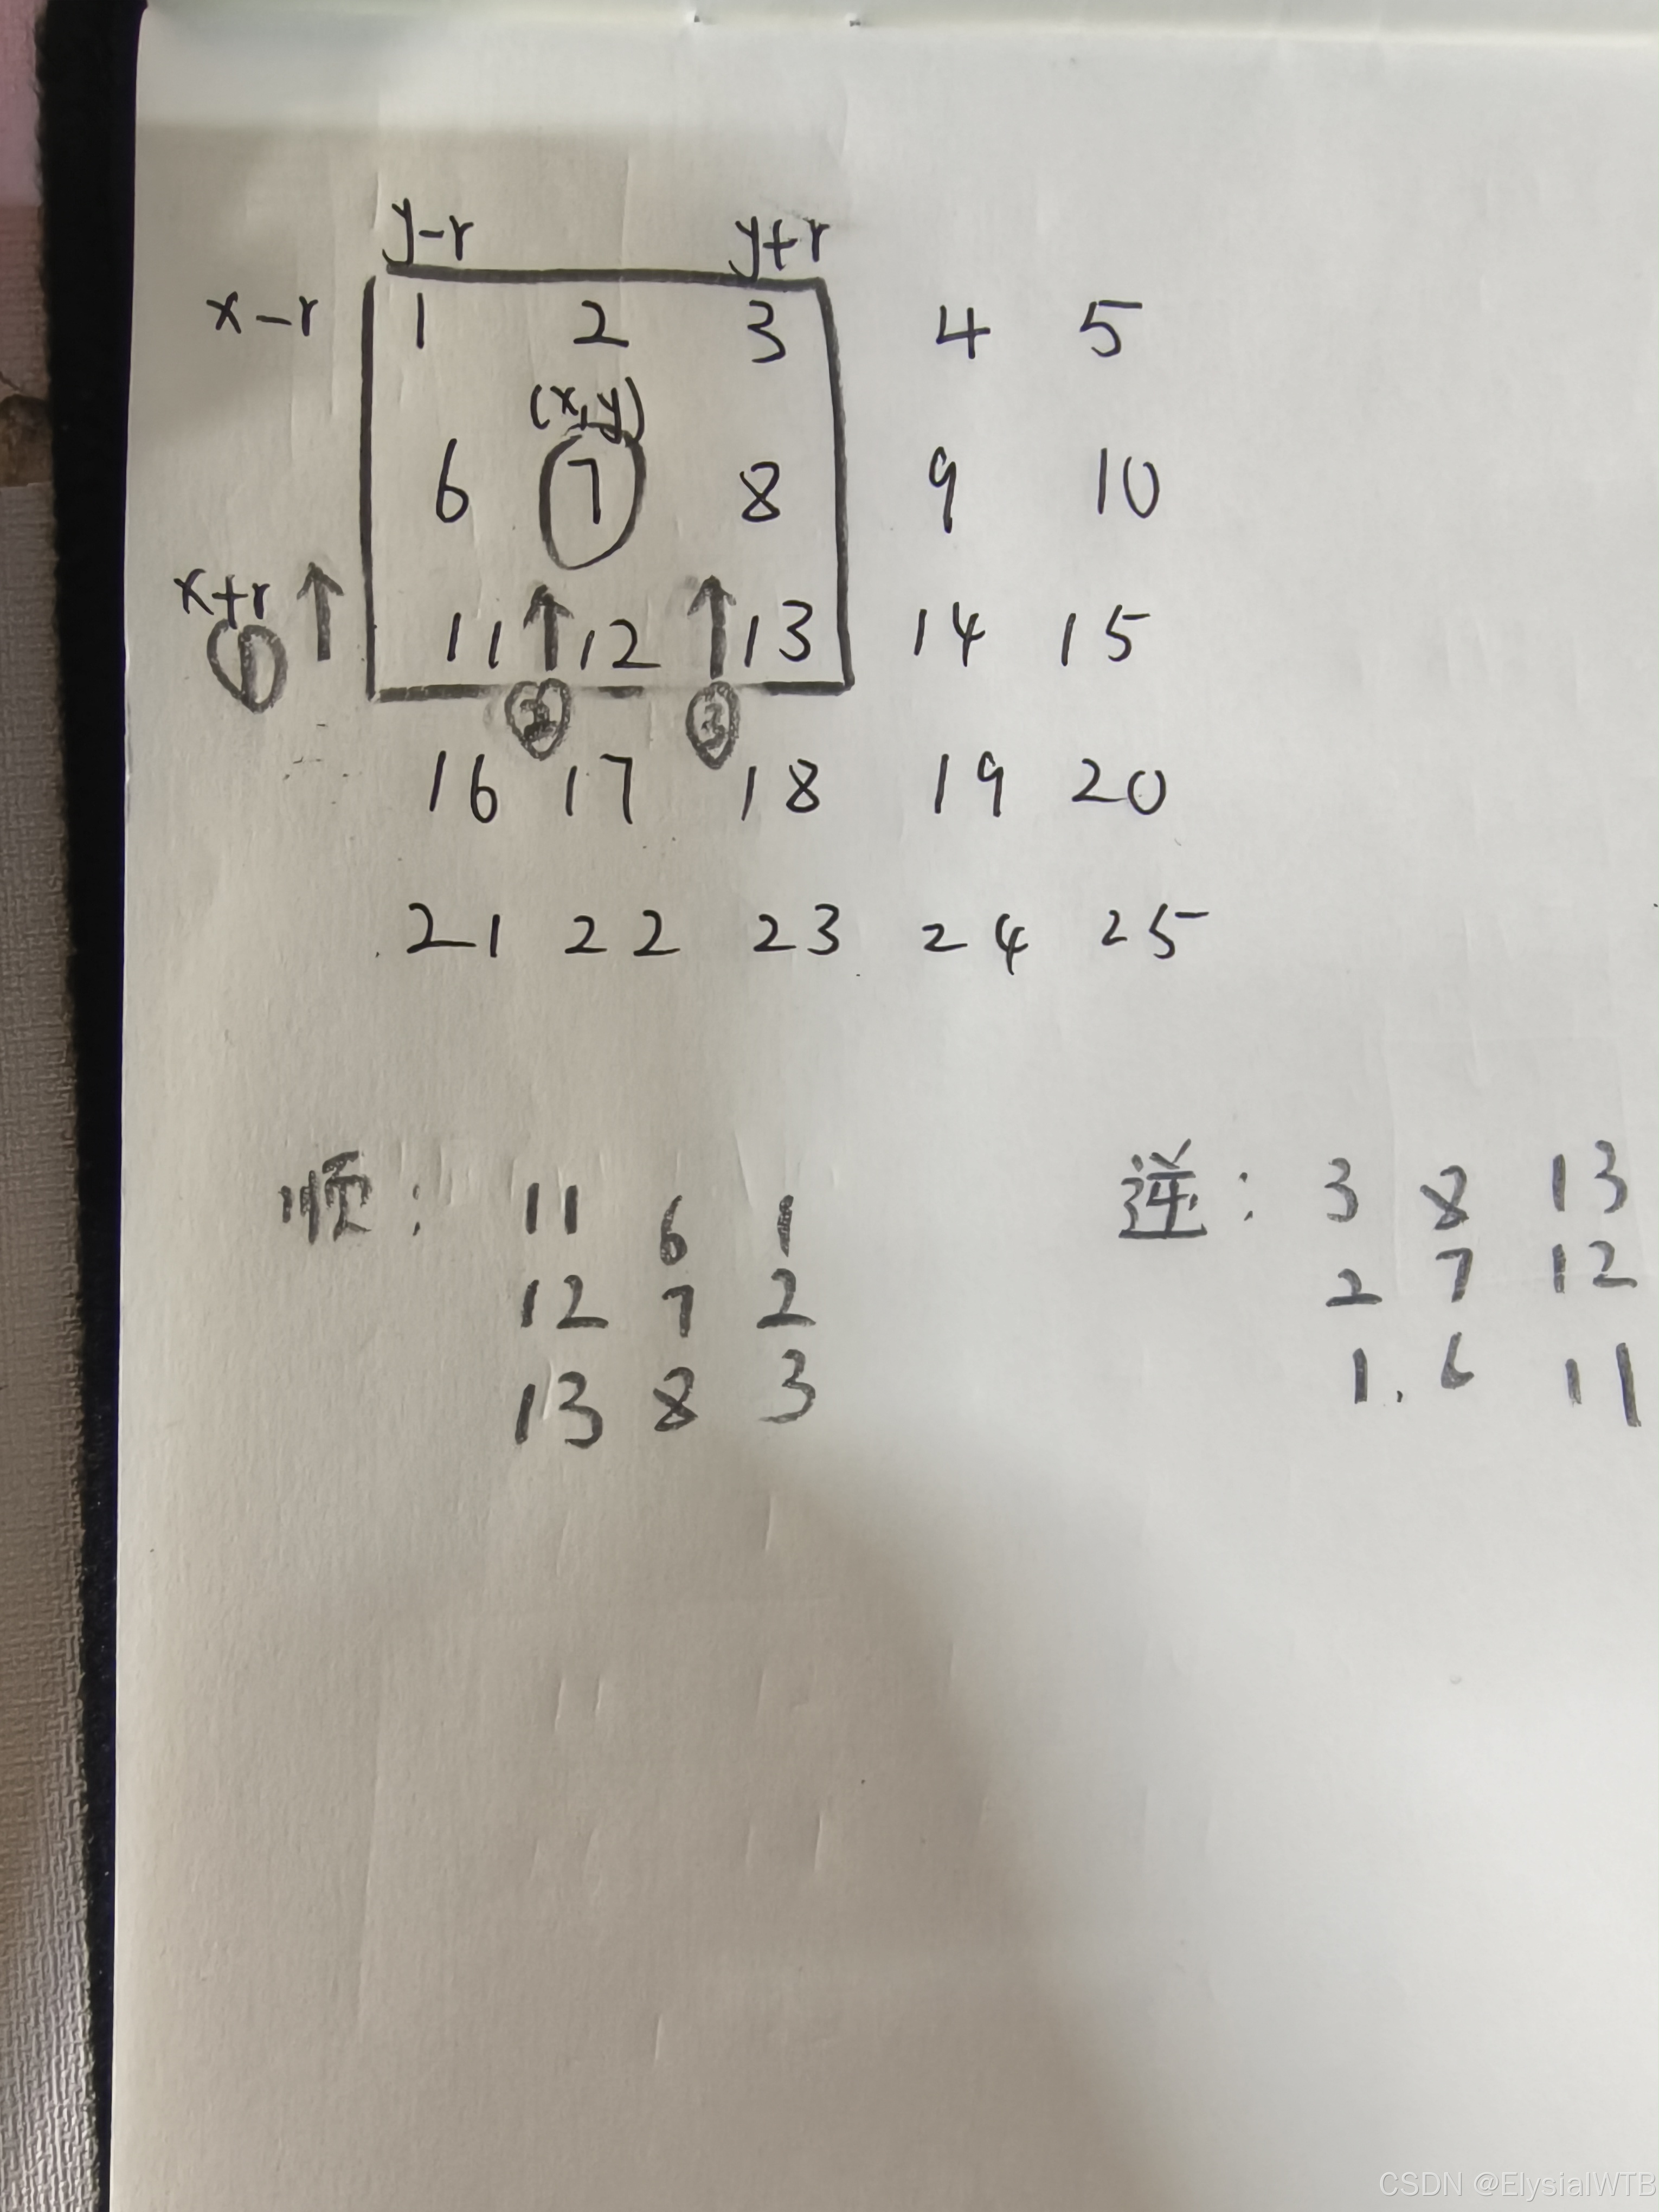 y-r y+r
x-r 1 2 3 4 5
(x,y)
6 7 8 9 10
x+r ↑ 11 ↑ 12 ↑ 13 14 15
① ② ③
16 17 18 19 20
21 22 23 24 25
顺: 11 6 1
12 7 2
13 8 3
逆: 3 8 13
2 7 12
1. 6 11
CSDN @ElysialWTB